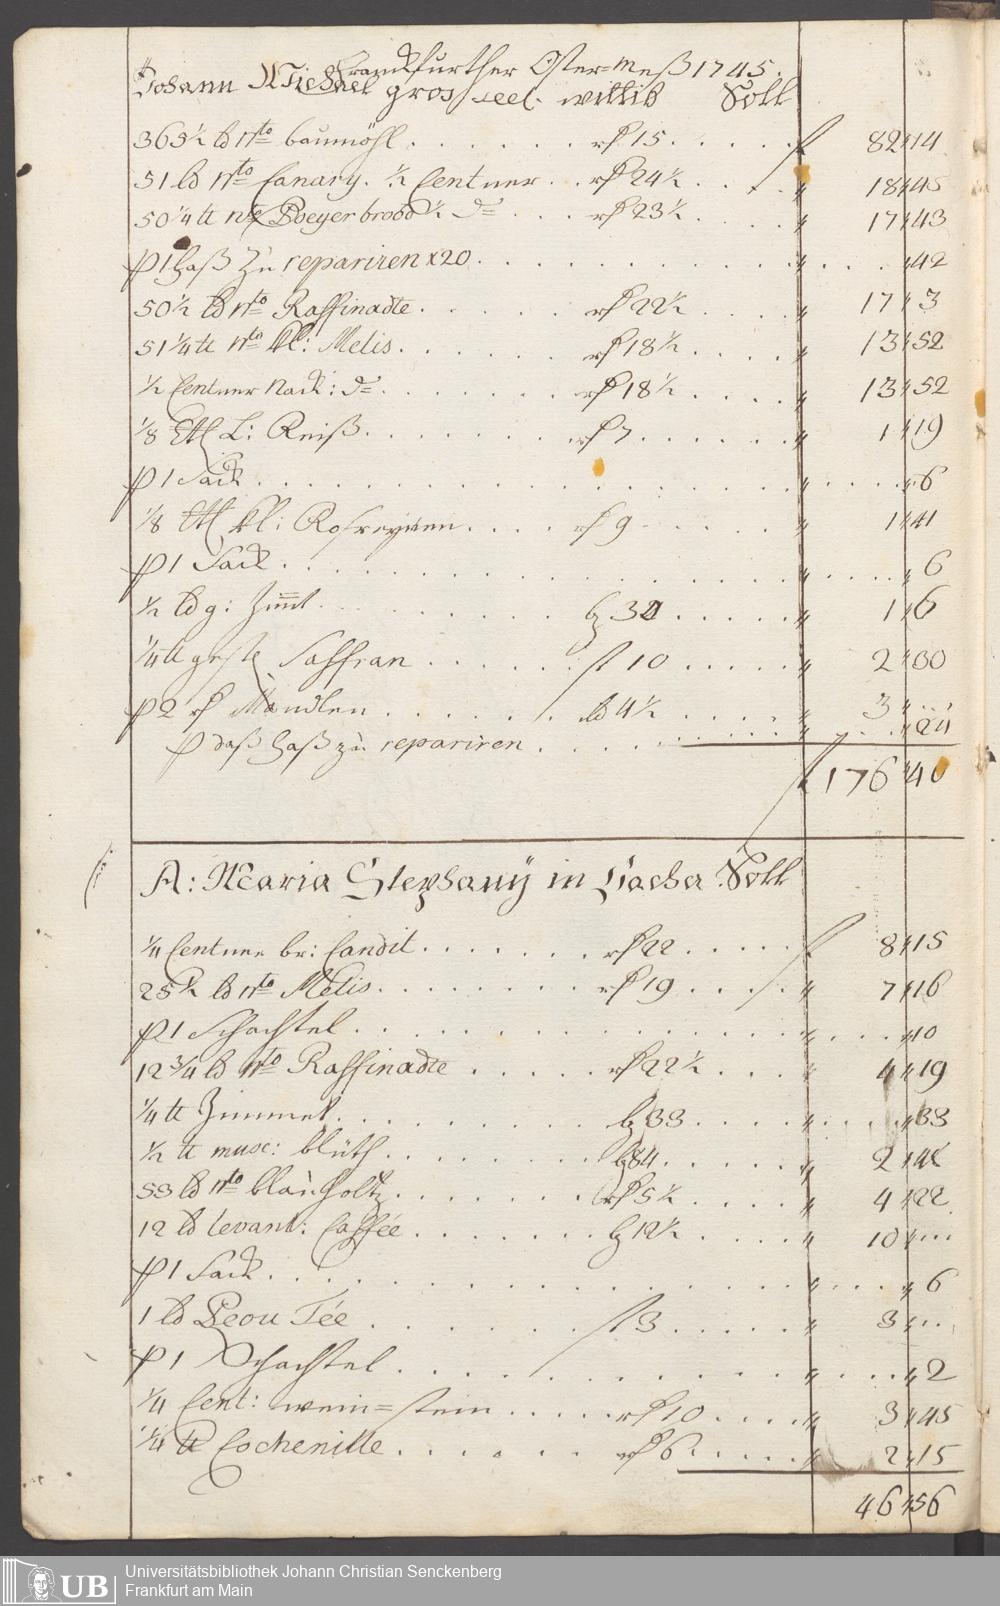 Franckfurther Oster=Meß 1745.
Johann Michael gros seel. wittib Soll
363½ ℔ Nto baumöhl . . . . . . rf 15 . . . . . f 82 " 14
51 ℔ Nto Canary. ½ Centner . . rf 24½ . . . . " 18 " 45
50¼ ℔ Nto Poeyerbrodt ½ do . . . rf 23½ . . . . " 17 " 43
p 1 Faß zu repariren x20 . . . . . . . . " . . . " 42
50½ ℔ Nto Raffinadte . . . . . rf 22½ . . . . " 17 " 3
51¼ ℔ Nto kl: Melis . . . . . . rf 18½ . . . . " 13 " 52
½ Centner Nack: do . . . . . . . rf 18½ . . . . " 13 " 52
⅛ Ctt L: Reiß . . . . . . . . rf 7 . . . . . . " 1 " 19
p 1 Sack . . . . . . . . . . . . . . . . " . . . . " 6
⅛ Ctt kl: Rosseynen . . . . rf 9 . . . . " 1 " 41
p 1 Sack . . . . . . . . . . . . . . . . " . . . . " 6
½ ℔ g: Zimmt . . . . . . . bz 32 . . . . . " 1 " 6
¼ ℔ geste Saffran . . . . . . f 10 . . . . . " 2 " 30
p 2 rf Mandlen . . . . . . ℔ 4½ . . . . " 3 " . . .
p daß Faß zu repariren . . . . . . . . . " . . . " 24
f 176 " 40
A: Maria Stephany in Soll
¼ Centner br: Candit . . . . . . rf 22 . . . . . f 8 " 15
25½ ℔ Nto Melis . . . . . . . . rf 19 . . . . . " 7 " 16
p 1 Schachtel . . . . . . . . . . . . . . . " . . . . " 10
12¾ ℔ Nto Raffinadte . . . . . rf 22½ . . . . " 4 " 19
¼ ℔ Zimmet . . . . . . . . bz 33 . . . . . " . . . . " 33
½ ℔ musc: blüth . . . . . . . bz 84 . . . . . " 2 " 48
53 ℔ Nto blauholtz . . . . . . . rf 5½ . . . . . " 4 " 22
12 ℔ levant: Caffée . . . . . . . bz 12½ . . . . " 10 " . . .
p 1 Sack . . . . . . . . . . . . . . . . " . . . . " 6
1 ℔ Peou Tée . . . . . . . f 3 . . . . . " 3 " . . .
p 1 Schachtel . . . . . . . . . . . . . . . " . . . . " 2
¼ Cent: wein=stein . . . . . rf 10 . . . . " 3 " 45
¼ ℔ Cochenille . . . . . . . rf 6 . . . . . " 2 " 15
46 " 56
UB
Universitätsbibliothek Johann Christian Senckenberg
Frankfurt am Main